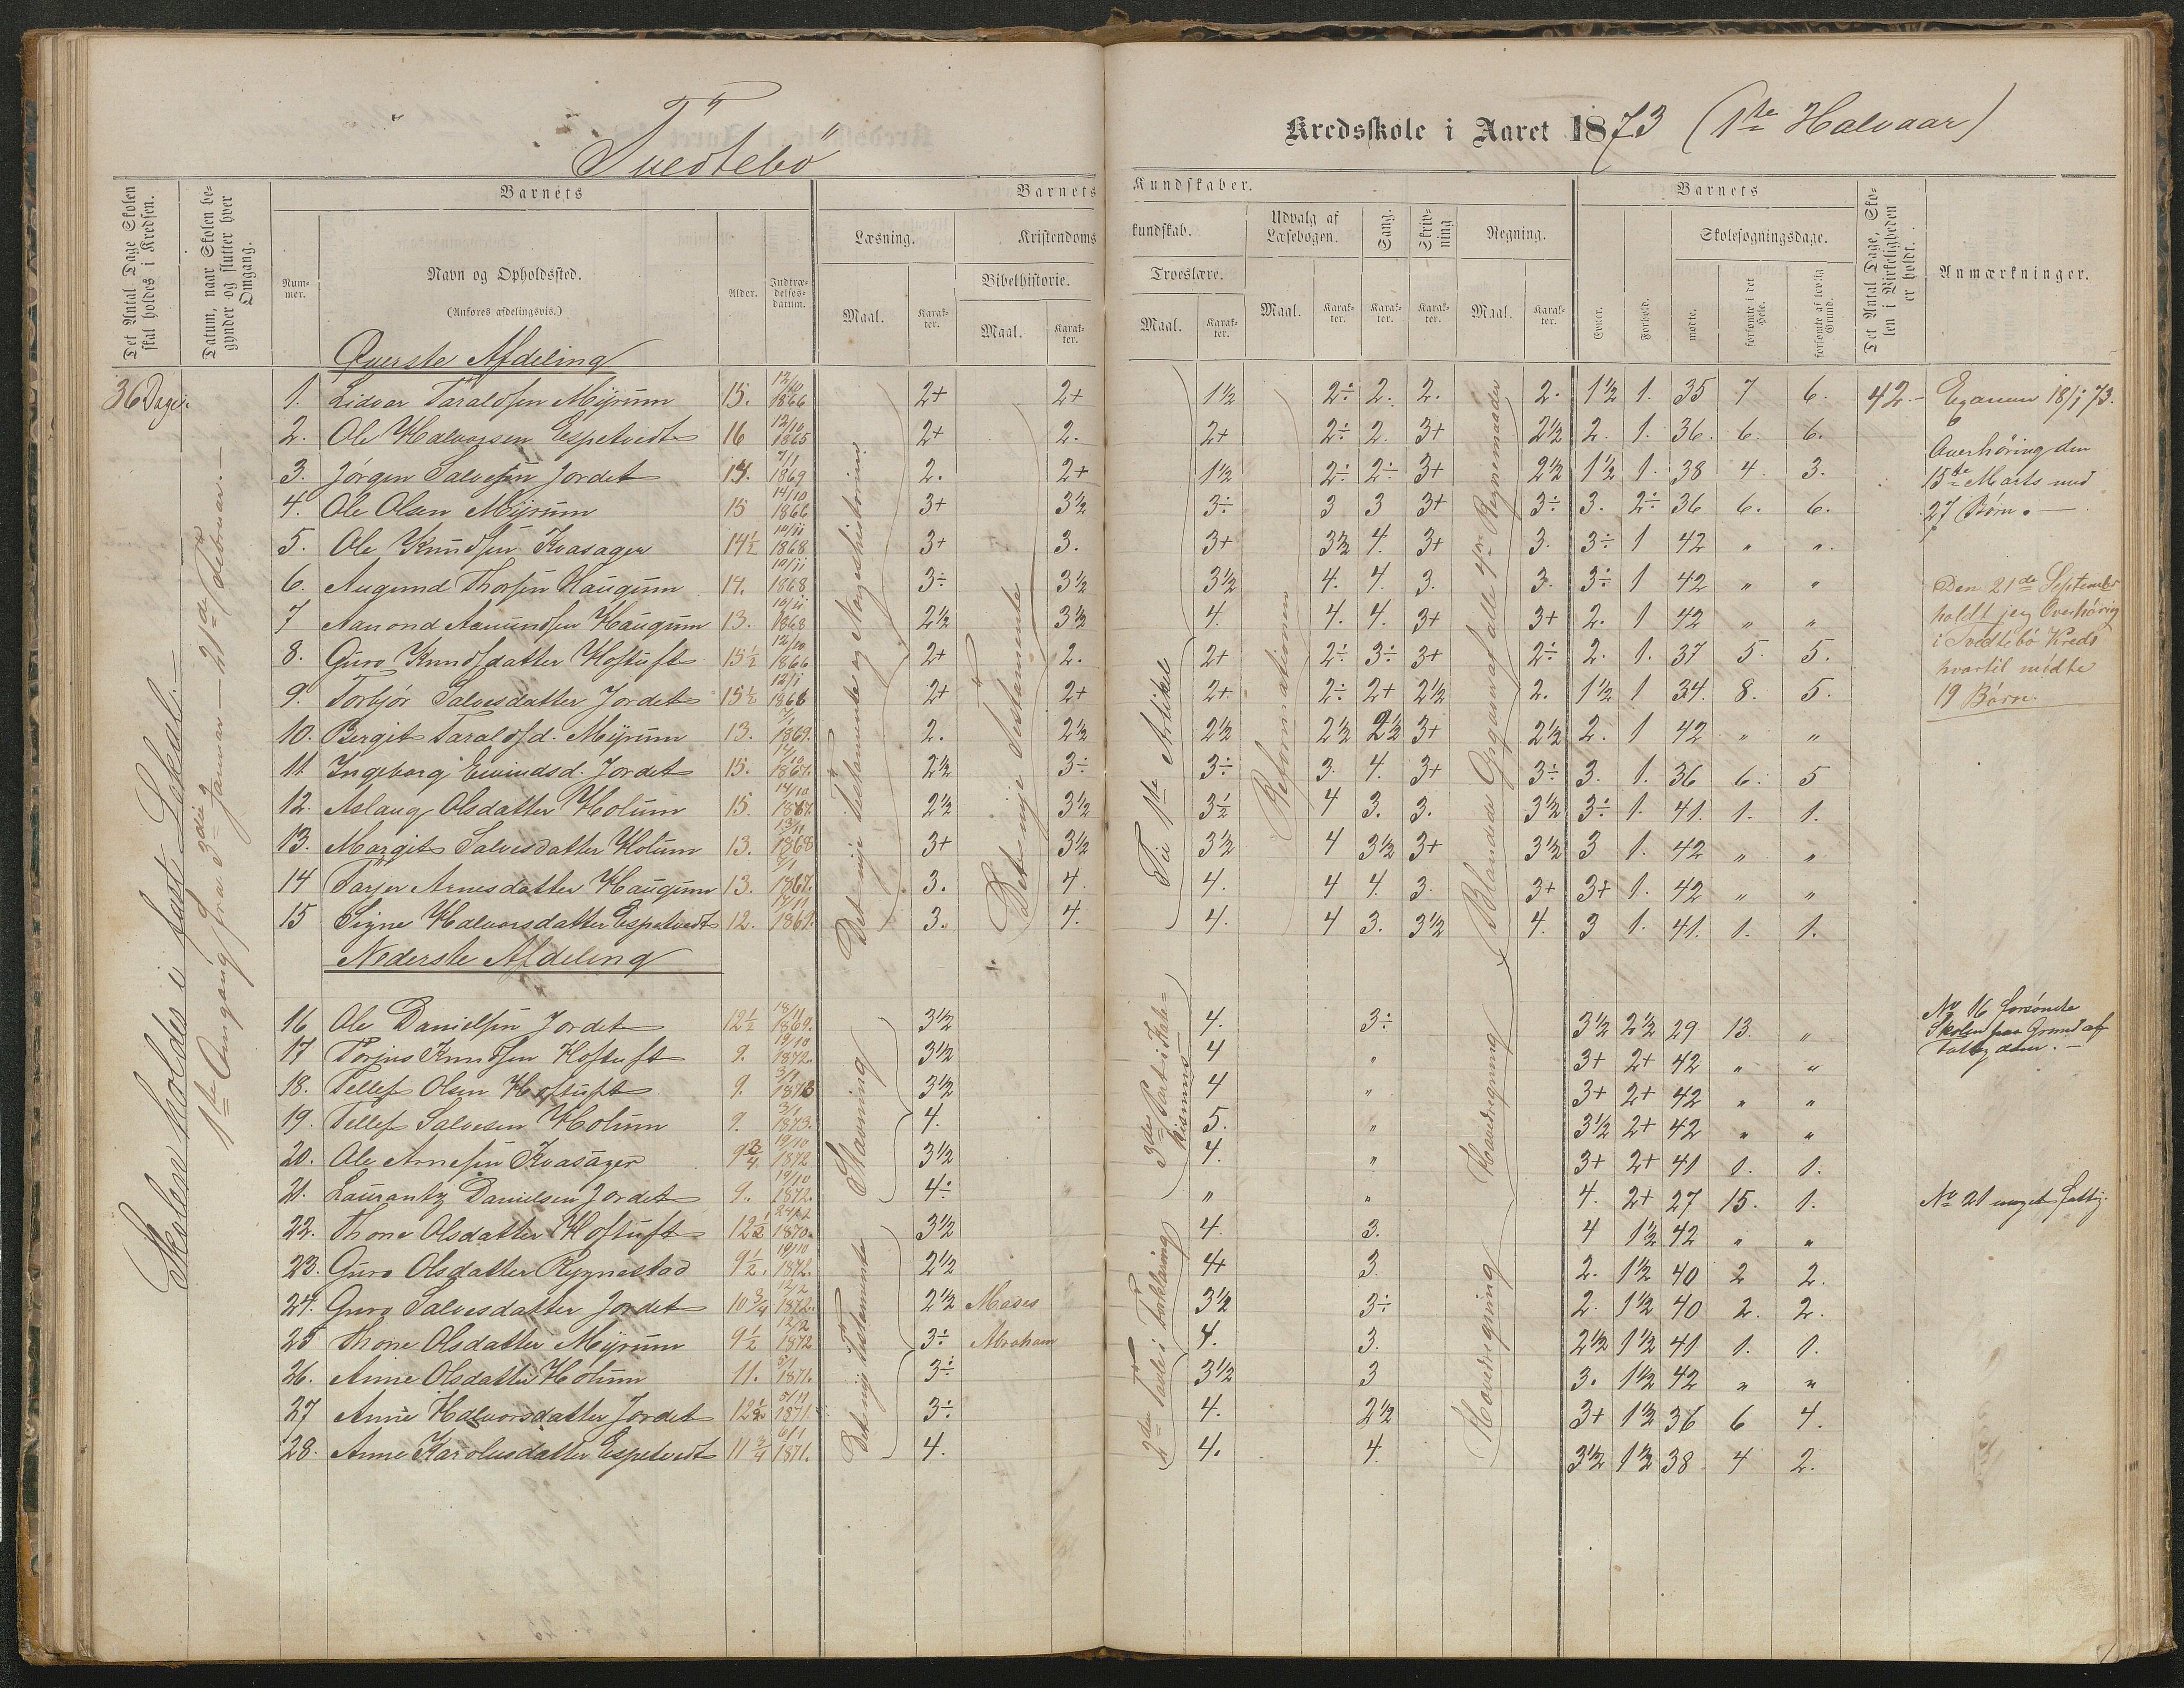 "Tvedtebö"
Kredsskole i Aaret 1873 (1ste Halvaar)
Det Antal Dage Skolen skal holdes i Kredsen.
Datum, naar Skolen begynder og slutter hver Omgang.
Barnets
Barnets
Kundskaber.
Barnets
Det Antal Dage, Skolen i Virkeligheden er holdt.
Anmærkninger.
Nummer.
Navn og Opholdssted.
(Anføres afdelingsvis.)
Alder.
Indtrædelses-datum.
Læsning.
Kristendoms
kundskab.
Udvalg af Læsebogen.
Sang.
Skrivning
Regning.
Skolesøgningsdage.
Maal.
Karakter.
Bibelhistorie.
Maal.
Karakter.
Troeslære.
Maal.
Karakter.
Maal.
Karakter.
Karakter.
Karakter.
Maal.
Karakter.
Evner.
Forhold.
mødte.
forsømte i det Hele.
forsømte af lovlig Grund.
Øverste Afdeling
36 Dage.
Skolen holdes i fast Lokal.
1ste Omgang fra 3die Januar — 21de Februar.
Det nye Testamente og Norgeshistorien
Det nye Testamente
Til 1ste Artikel
Reformationen
Blandede Opgaver af alle 4 Regnemaader
1. Lidvar Taraldsen Myrum 15. 12/10 1866 2+ 2+ 1½ 2÷ 2. 2. 2. 1½ 1. 35 7 6. 42.
2. Ole Halvorsen Espetvedt 16 12/10 1865 2+ 2. 2+ 2÷ 2. 3+ 2½ 2. 1. 36. 6. 6.
3. Jørgen Salvesen Jordet 14. 7/1 1869 2. 2+ 1½ 2÷ 2÷ 3+ 2½ 1½ 1. 38 4. 3.
4. Ole Olsen Myrum 15 14/10 1866 3+ 3½ 3÷ 3 3 3+ 3÷ 3. 2÷ 36 6. 6.
5. Ole Knudsen Kvasager 14½ 10/11 1868 3+ 3. 3+ 3½ 4. 3+ 3. 3÷ 1 42 " "
6. Augund Thorsen Haugum 14. 10/11 1868 3÷ 3½ 3½ 4. 4. 3. 3. 3÷ 1 42 " "
7 Aanond Aanundsen Haugum 13. 10/11 1868 2½ 3½ 4. 4. 4. 3+ 3+ 2. 1 42 " "
8. Guro Knudsdatter Hoftuft 15½ 12/10 1866 2+ 2. 2+ 2÷ 3÷ 3+ 2÷ 2. 1. 37 5. 5.
9. Torbjør Salvesdatter Jordet 15½ 12/1 1868 2+ 2+ 2+ 2÷ 2+ 2½ 2. 1½ 1 34. 8. 5.
10. Bergit Taraldsd. Myrum 13. 7/1 1869. 2. 2½ 2½ 2½ 2½ 3+ 2½ 2. 1 42 " "
11. Ingeborg Eivindsd. Jordet 15. 14/10 1867. 2½ 3÷ 3÷ 3. 4. 3+ 3÷ 3. 1. 36 6. 5
12. Aslaug Olsdatter Holum 15. 14/10 1867. 2½ 3½ 3½ 4 3. 3. 3½ 3÷ 1. 41. 1. 1.
13. Margit Salvesdatter Holum 13. 13/11 1868 3+ 3½ 3½ 4 3½ 3+ 3½ 3 1. 42 " "
14 Tarjer Arnesdatter Haugum 13. 3. 4. 4. 4 4. 3. 3+ 3+ 1. 42 " "
15 Signe Halvorsdatter Espetvedt 12. 1869. 3. 4. 4. 4 3. 3½ 4. 3 1. 41. 1. 1.
Examen 18/1 73.
Overhøring den
15de Marts med
27 Børn. —
Den 21de September
holdt jeg Overhøring
i Tvedtebö Kreds
hvortil mødte
19 Børn.
Nederste Afdeling
Stavning
Det nye Testamente
3die Part i Katekismus
2den Part i Forklaring
Hovedregning
Hovedregning
16 Ole Danielsen Jordet 12½ 18/11 1869. 3½ 4. 3÷ 3½ 2½ 29 13. "
17 Torjus Knudsen Hoftuft 9. 19/10 1872. 3½ 4 " 3+ 2+ 42 " "
18. Tellef Olsen Hoftuft 9. 3/1 1873 3½ 4 " 3+ 2+ 42 " "
19. Tellef Salvesen Holum 9. 3/1 1873. 4. 5. " 3½ 2+ 42 " "
20. Ole Arnesen Kvasager 9¾ 19/10 1872 3½ 4. " 3+ 2+ 41 1. 1.
21. Laurantz Danielsen Jordet 9. 19/10 1872. 4÷ " " 4. 2+ 27 15. 1.
22. Thone Olsdatter Hoftuft 12½ 1870. 3½ 4. 3. 4 1½ 42 " "
23. Guro Olsdatter Rygnestad 9½. 19/10 1872. 2½ 4+ 3. 2. 1½ 40 2 2.
24. Guro Salvesdatter Jordet 10¾ 12/2 1872. 2½ Moses 3½ 3÷ 2. 1½ 40 2. 2.
25 Thone Olsdatter Myrum 9½ 12/2 1872 3÷ Abraham 4. 3. 2½ 1½ 41 1. 1.
26. Anne Olsdatter Holum 11. 1871. 3÷ 3½ 3 3. 1½ 42 " "
27 Anne Halvorsdatter Jordet 12½ 1871. 3÷ 4. 2½ 3+ 1½ 36 6 4.
28. Anne Karolusdatter Espetvedt 11¾ 6/1 1871. 4. 4. 4. 3½ 1½ 38 4 2.
No 16 forsømte
Skolen paa Grund af
Fattigdom. —
No 21 meget fattig.